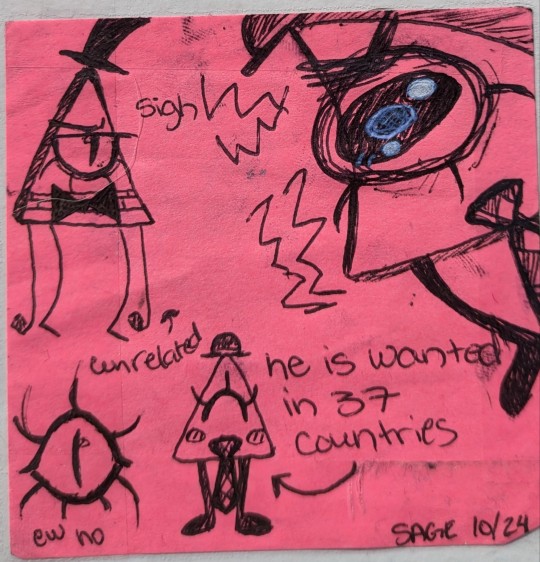 sigh
unrelated
he is wanted
in 37
countries
ew no
SAGE 10/24